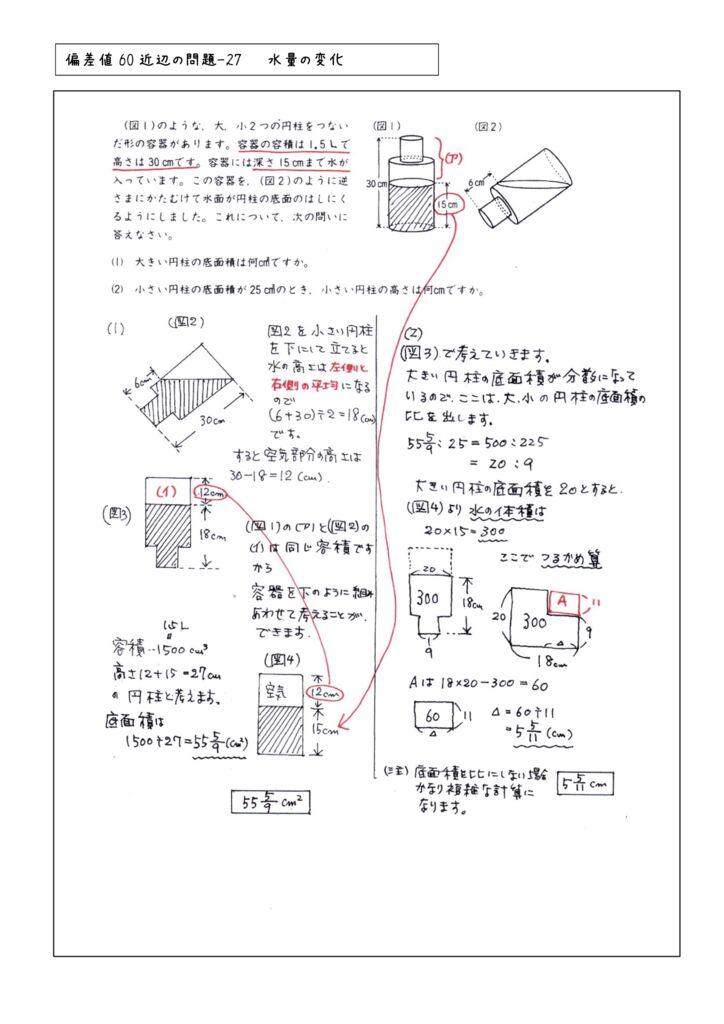 偏差値60近辺の問題-27　水量の変化
(図1)のような，大，小2つの円柱をつない
だ形の容器があります。容器の容積は1.5Lで
高さは30cmです。容器には深さ15cmまで水が
入っています。この容器を，(図2)のように逆
さまにかたむけて水面が円柱の底面のはしにく
るようにしました。これについて，次の問いに
答えなさい。
(図1)
(ア)
30cm
15cm
(図2)
6cm
(1) 大きい円柱の底面積は何cm²ですか。
(2) 小さい円柱の底面積が25cm²のとき，小さい円柱の高さは何cmですか。
(1)
(図2)
6cm
30cm
図2を小さい円柱
を下にして立てると
水の高さは左側と
右側の平均になる
ので
(6+30)÷2=18(cm)
です。
すると空気部分の高さは
30-18=12(cm)
(図3)
(イ)
12cm
18cm
(図1)の(ア)と(図2)の
(イ)は同じ容積です
から
容器を下のように組み
あわせて考えることが
できます。
1.5L
〃
容積…1500cm³
高さ12+15=27cm
の円柱と考えます。
底面積は
1500÷27=55 5/9(cm²)
(図4)
空気
12cm
15cm
55 5/9 cm²
(2)
(図3)で考えていきます。
大きい円柱の底面積が分数になって
いるので、ここは、大、小の円柱の底面積の
比を出します。
55 5/9：25=500：225
=20：9
大きい円柱の底面積を20とすると、
(図4)より水の体積は
20×15=300
ここでつるかめ算
20
300
18cm
9
20
A
11
300
9
△
18cm
Aは18×20-300=60
60
11
△
△=60÷11
=5 5/11(cm)
(注)底面積を比にしない場合
かなり複雑な計算に
なります。
5 5/11 cm